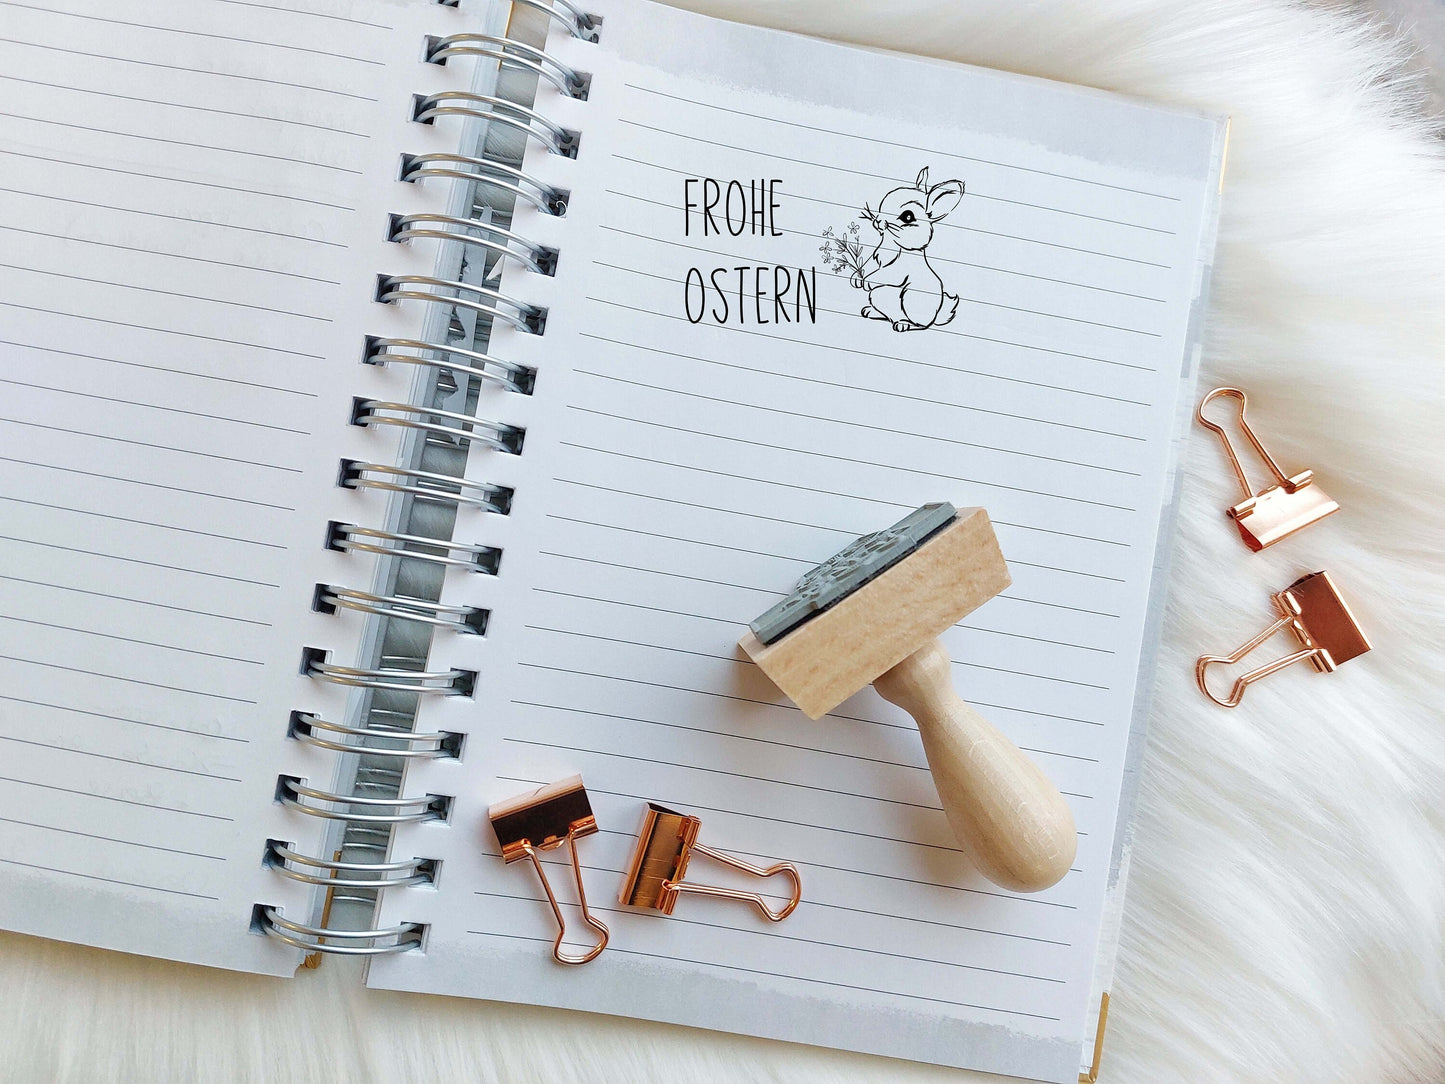 FROHE
OSTERN